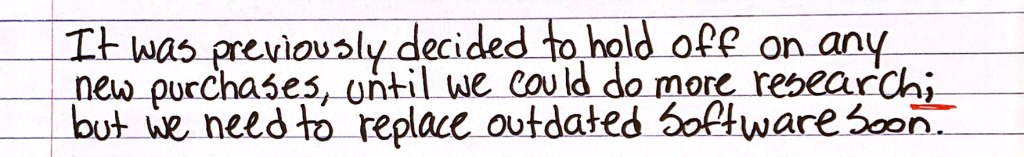 It was previously decided to hold off on any
new purchases, until we could do more research;
but we need to replace outdated software soon.